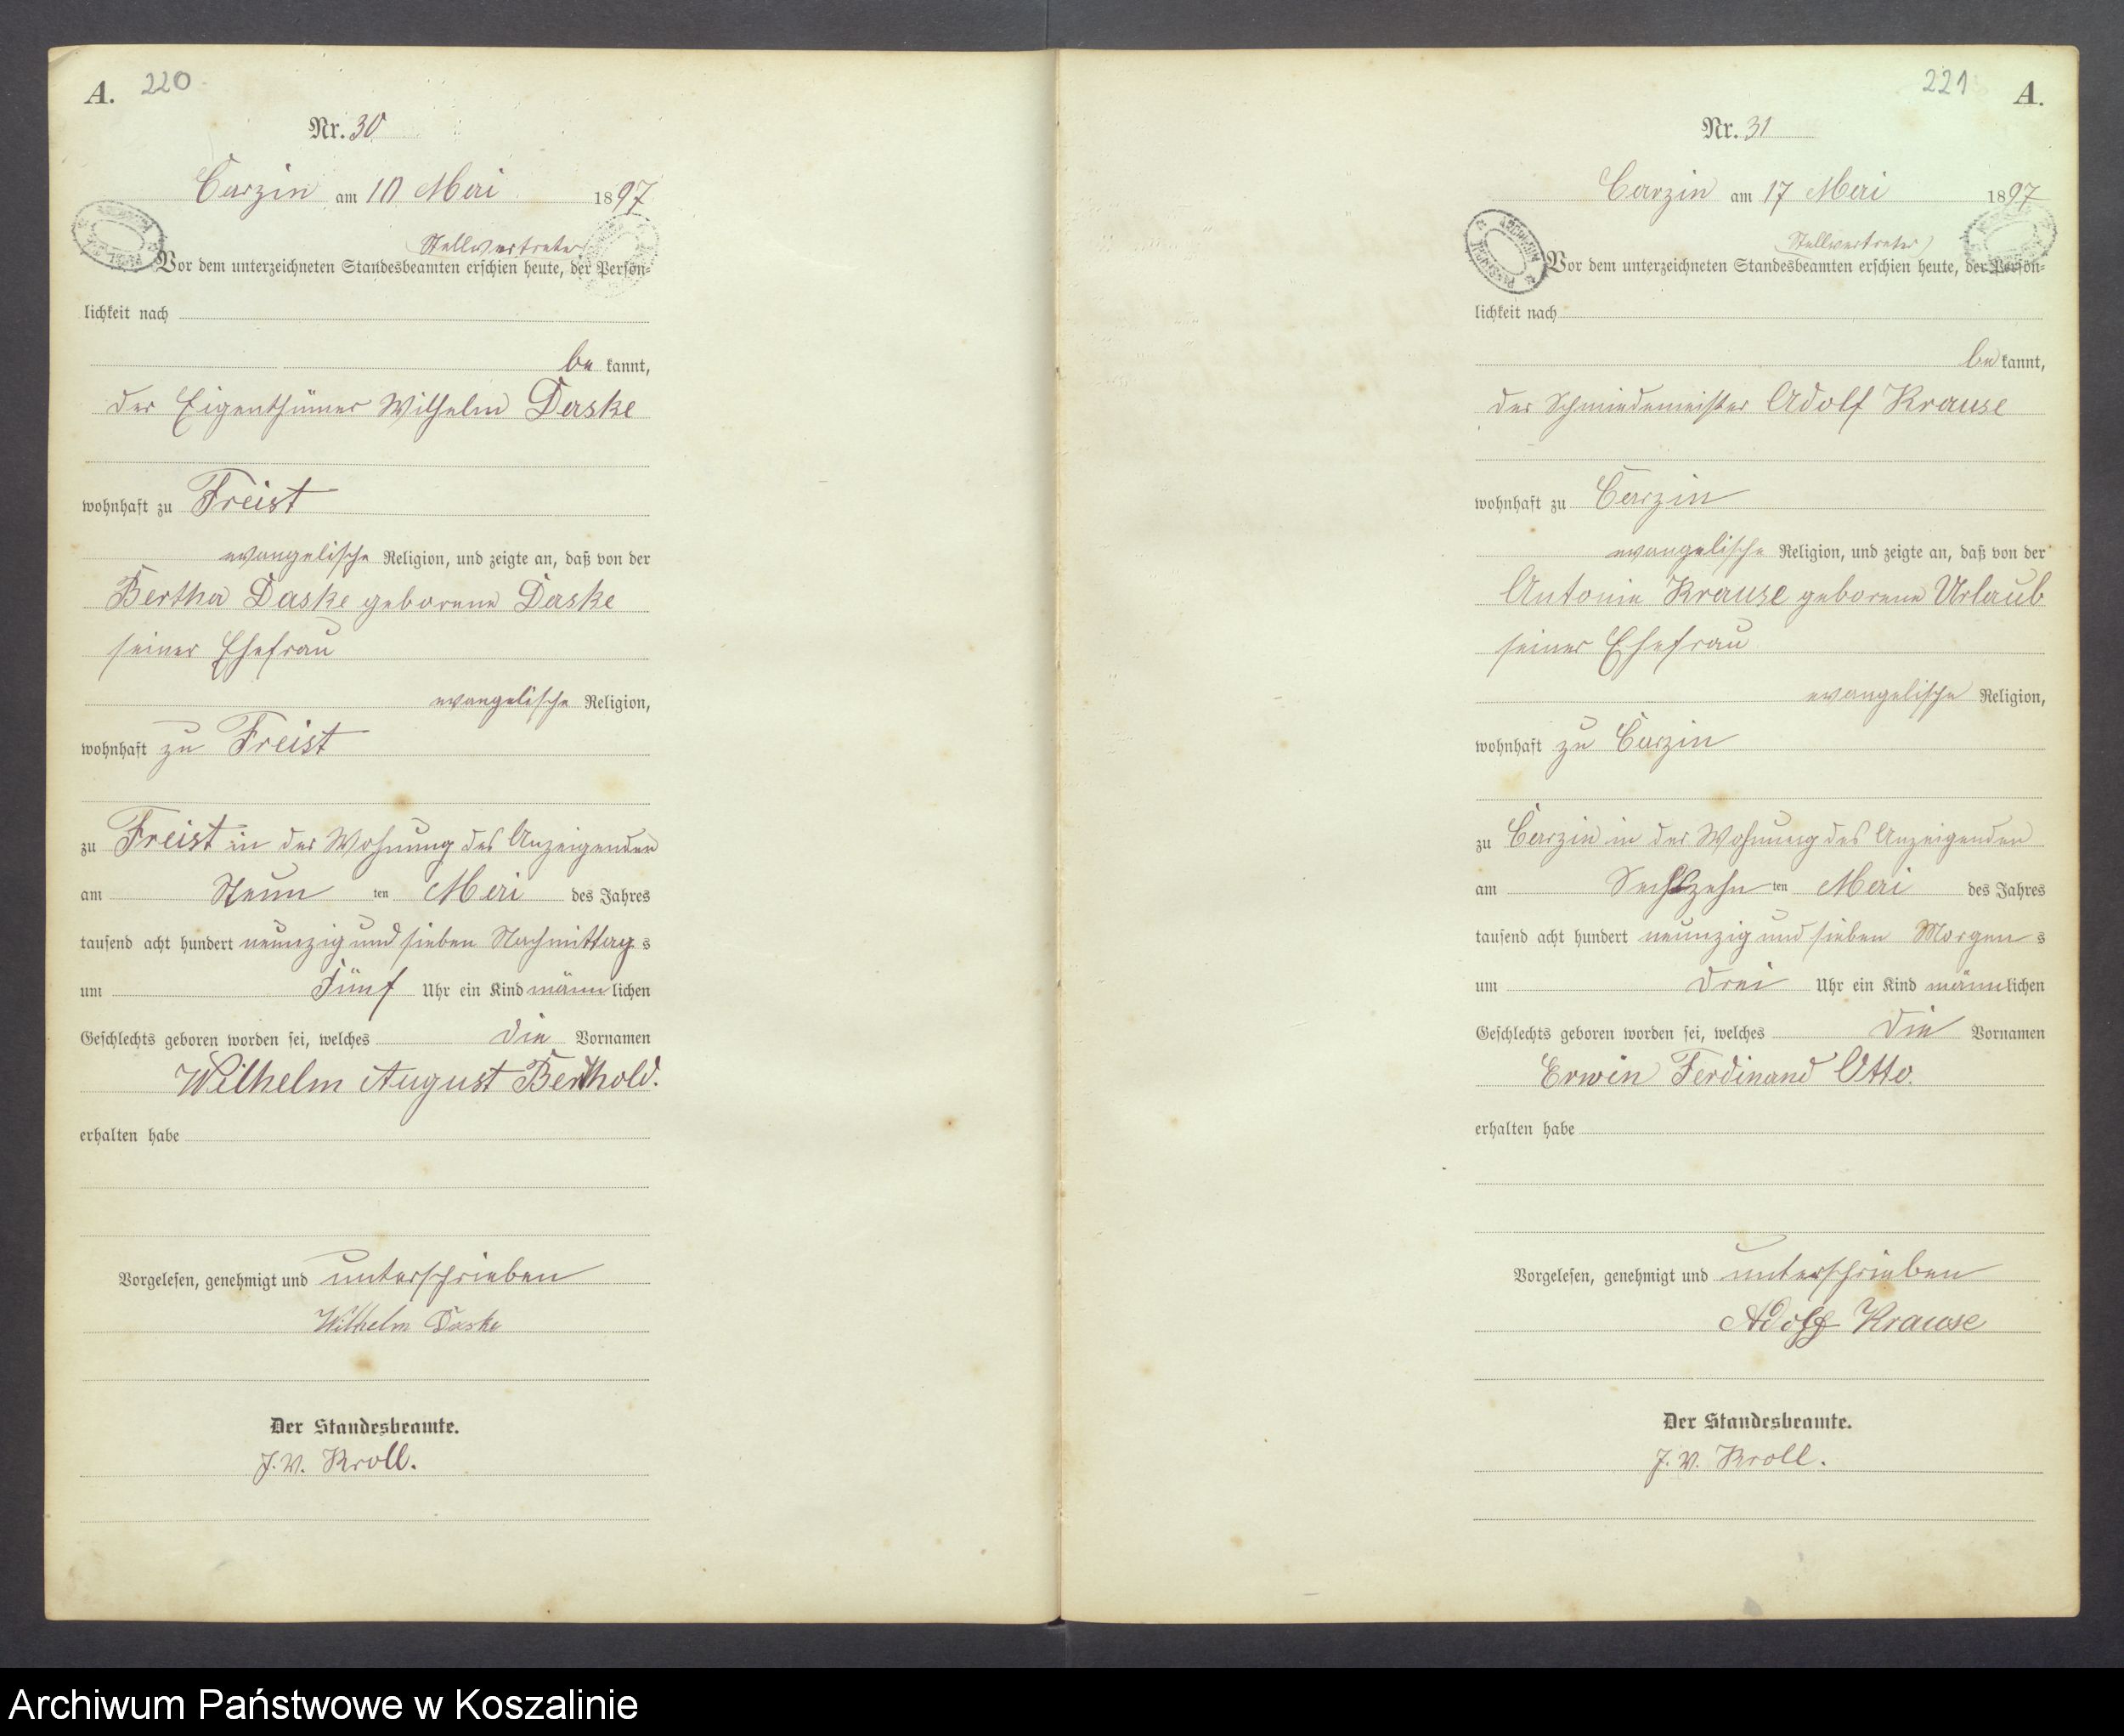 A. 220
Nr. 30
Carzin am 10 Mai 1897
Stellvertreter
Vor dem unterzeichneten Standesbeamten erschien heute, der Persön-
lichkeit nach
be kannt,
der Eigenthümer Wilhelm Daske
wohnhaft zu Freist
evangelische Religion, und zeigte an, daß von der
Bertha Daske geborene Daske
seiner Ehefrau
evangelische Religion,
wohnhaft zu Freist
zu Freist in der Wohnung des Anzeigenden
am Neun ten Mai des Jahres
tausend acht hundert neunzig und sieben Nachmittag s
um Fünf Uhr ein Kind männ lichen
Geschlechts geboren worden sei, welches die Vornamen
Wilhelm August Berthold.
erhalten habe
Vorgelesen, genehmigt und unterschrieben
Wilhelm Daske
Der Standesbeamte.
J. V. Kroll.
221 A.
Nr. 31
Carzin am 17 Mai 1897
Stellvertreter
Vor dem unterzeichneten Standesbeamten erschien heute, der Persön-
lichkeit nach
be kannt,
der Schmiedemeister Adolf Krause
wohnhaft zu Carzin
evangelische Religion, und zeigte an, daß von der
Antonie Krause geborene Urlaub
seiner Ehefrau
evangelische Religion,
wohnhaft zu Carzin
zu Carzin in der Wohnung des Anzeigenden
am Sechszehn ten Mai des Jahres
tausend acht hundert neunzig und sieben Morgen s
um Drei Uhr ein Kind männ lichen
Geschlechts geboren worden sei, welches die Vornamen
Erwin Ferdinand Otto.
erhalten habe
Vorgelesen, genehmigt und unterschrieben
Adolf Krause
Der Standesbeamte.
J. V. Kroll.
Archiwum Państwowe w Koszalinie